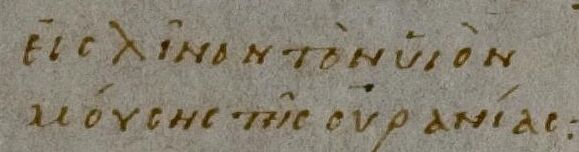 εἰς λῖνον τὸν ὑιὸν
μούσης τῆς οὐρανίας: